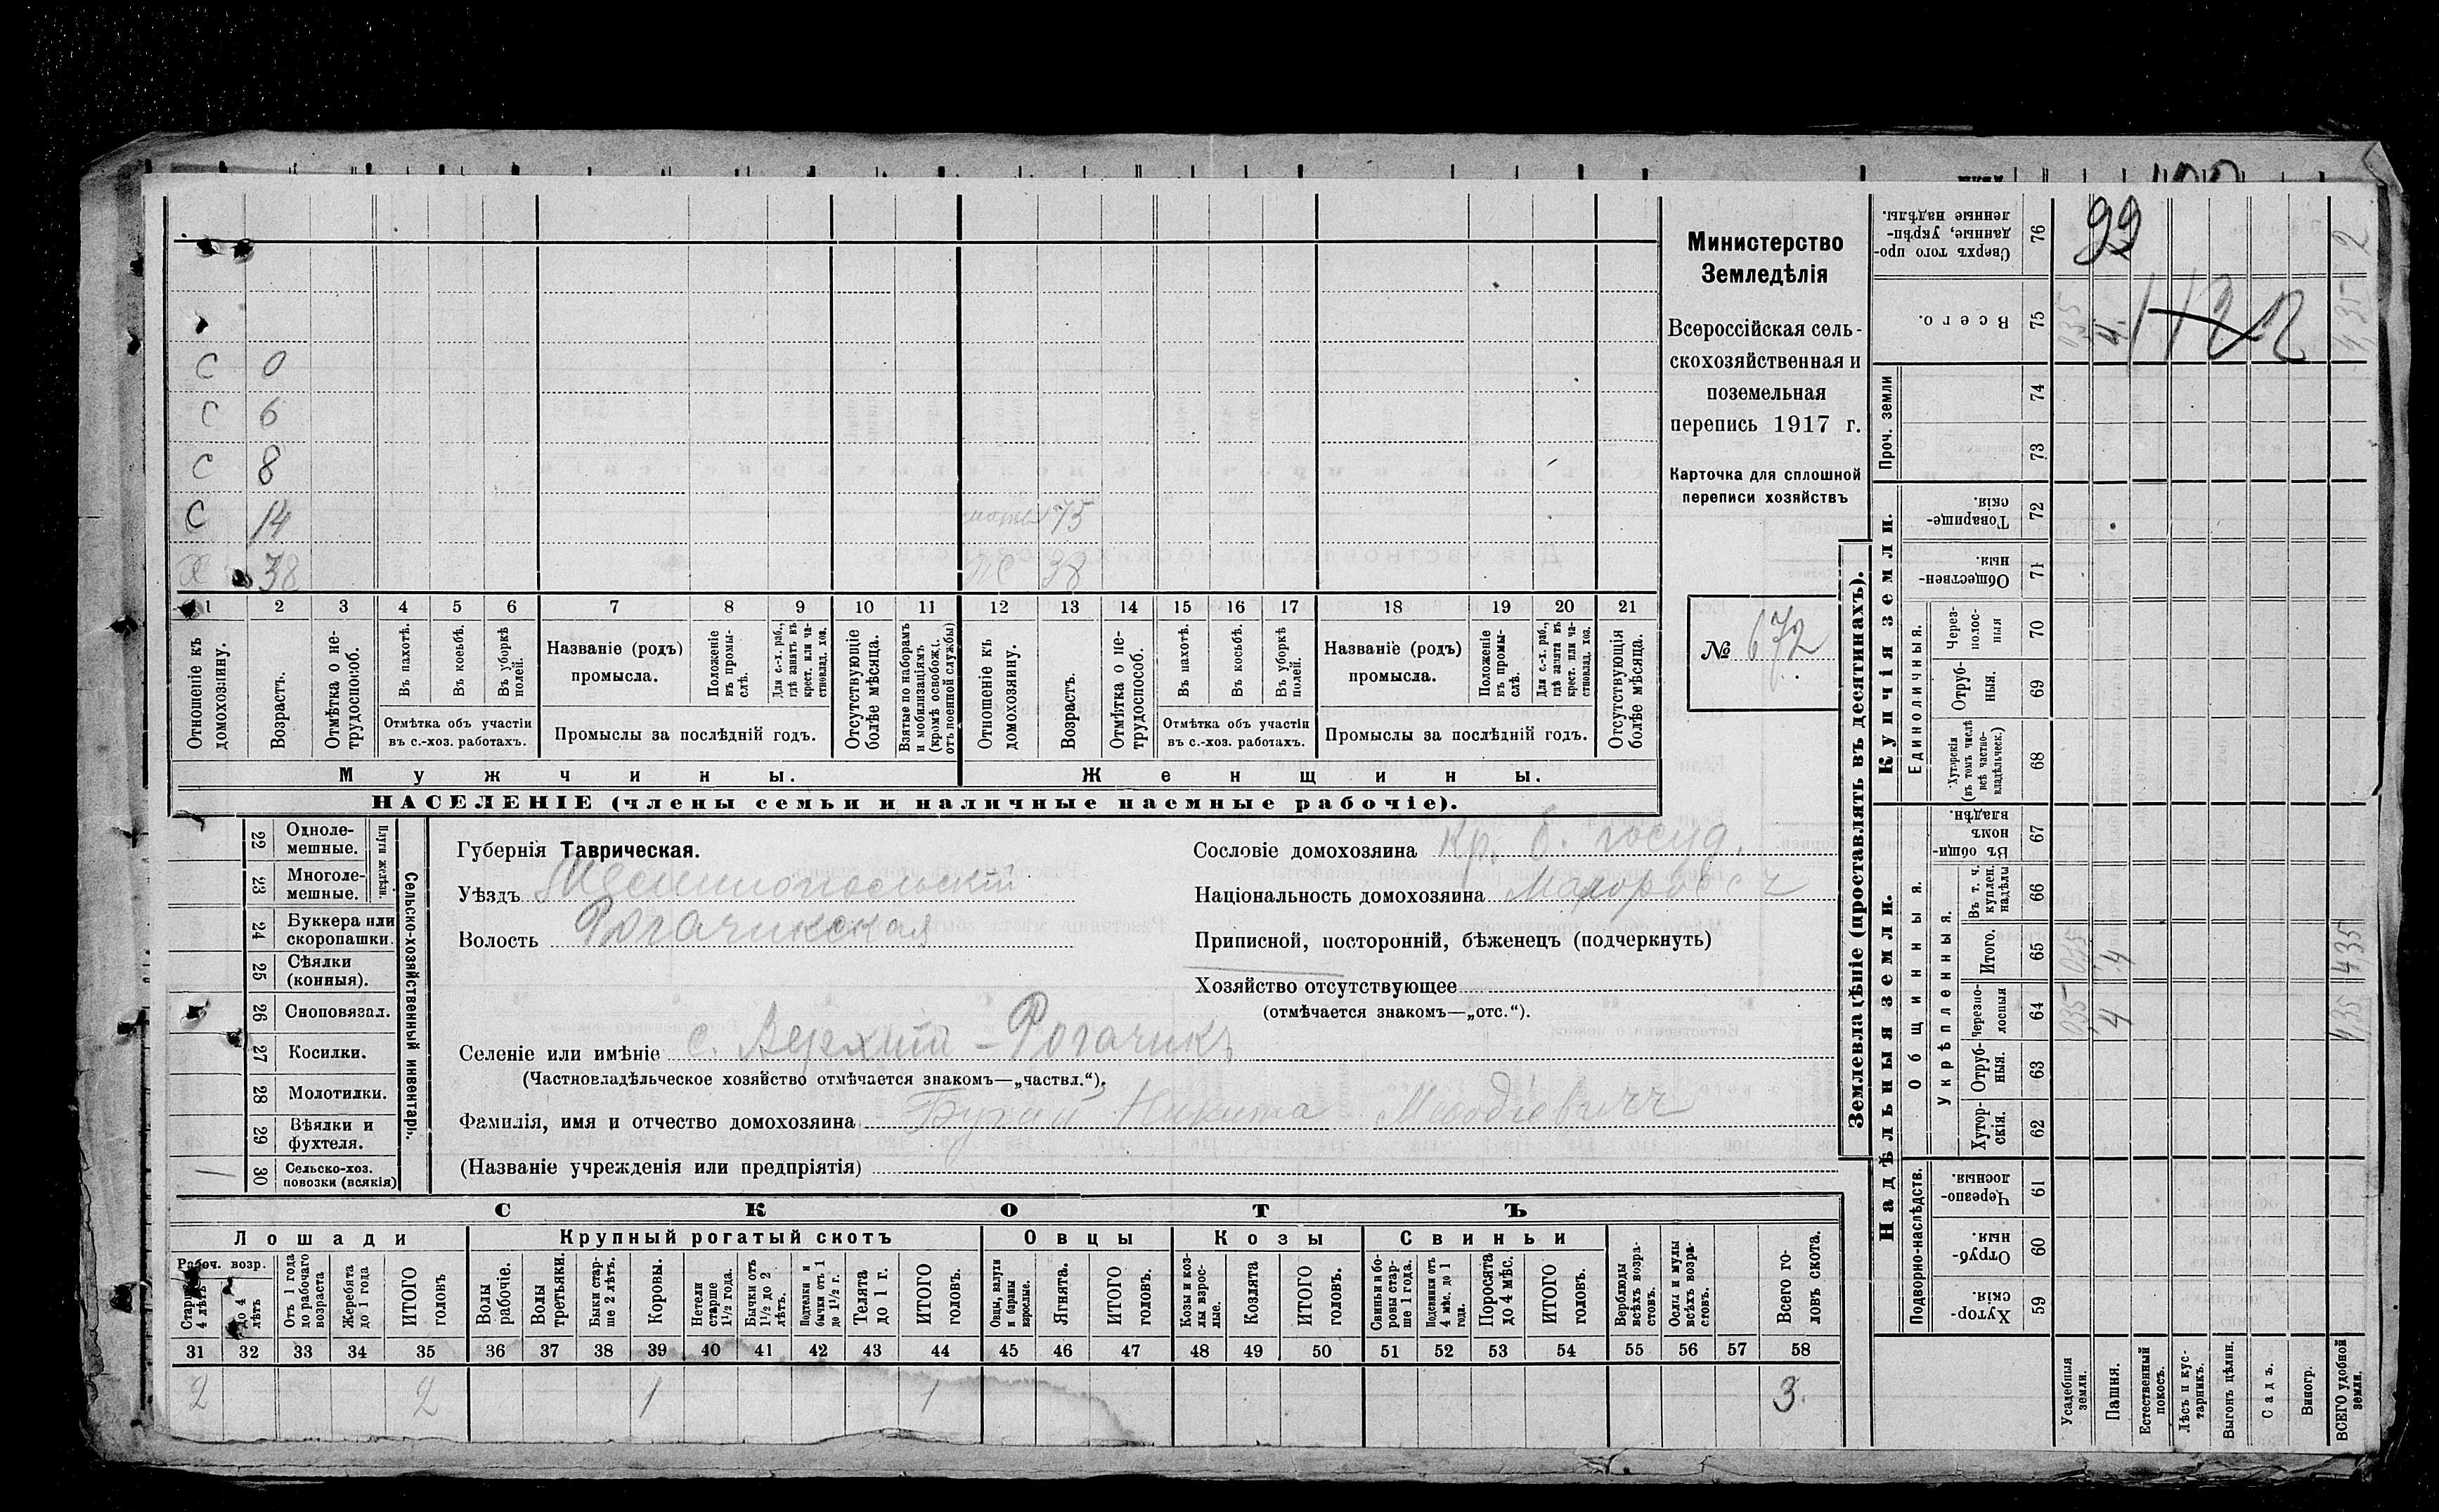 99
112
Министерство
Земледѣлія
Всероссійская сель-
скохозяйственная и
поземельная
перепись 1917 г.
Карточка для сплошной
переписи хозяйствъ
№ 672
С 0
С 6
С 8
С 14
38
75
38
1 2 3 4 5 6 7 8 9 10 11 12 13 14 15 16 17 18 19 20 21
Отношеніе къ домохозяину.
Возрастъ.
Отмѣтка о не-трудоспособ.
Въ пахотѣ.
Въ косьбѣ.
Въ уборкѣ полей.
Отмѣтка объ участіи
въ с.-хоз. работахъ.
Названіе (родъ)
промысла.
Положеніе въ промы-слѣ.
Для с.-х. раб., гдѣ занятъ въ крест. или ча-стновлад. хоз.
Промыслы за послѣдній годъ.
Отсутствующіе болѣе мѣсяца.
Взятые по наборамъ и мобилизаціямъ (кромѣ освобожд. отъ военной службы)
Отношеніе къ домохозяину.
Возрастъ.
Отмѣтка о не-трудоспособ.
Въ пахотѣ.
Въ косьбѣ.
Въ уборкѣ полей.
Отмѣтка объ участіи
въ с.-хоз. работахъ.
Названіе (родъ)
промысла.
Положеніе въ промы-слѣ.
Для с.-х. раб., гдѣ занята въ крест. или ча-стновлад. хоз.
Промыслы за послѣдній годъ.
Отсутствующія болѣе мѣсяца.
Мужчины.
Женщины.
НАСЕЛЕНІЕ (члены семьи и наличные наемные рабочіе).
22 Одноле-мешные.
23 Многоле-мешные.
Плуги желѣзн.
24 Буккера или скоропашки.
25 Сѣялки (конныя).
26 Сноповязал.
27 Косилки.
28 Молотилки.
29 Вѣялки и фухтеля.
30 Сельско-хоз. повозки (всякія)
Сельско-хозяйственный инвентарь.
Губернія Таврическая.
Уѣздъ Мелитопольскій
Волость Рогачикская
Сословіе домохозяина Кр. б. госуд.
Національность домохозяина Малороссъ
Приписной, посторонній, бѣженецъ (подчеркнуть)
Хозяйство отсутствующее
(отмѣчается знакомъ—„отс.“).
Селеніе или имѣніе с. Верхній-Рогачикъ
(Частновладѣльческое хозяйство отмѣчается знакомъ—„частвл.“).
Фамилія, имя и отчество домохозяина Бугай Никита Меѳодіевичъ
(Названіе учрежденія или предпріятія)
СКОТЪ
Лошади
Крупный рогатый скотъ
Овцы
Козы
Свиньи
Рабоч. возр.
Старше 4 лѣтъ
до 4 лѣтъ
Отъ 1 года до рабочаго возраста
Жеребята до 1 года
ИТОГО головъ
Волы рабочіе.
Волы третьяки.
Быки стар-ше 2 лѣтъ.
Коровы.
Нетели старше 1½ года.
Бычки отъ 1½ до 2 лѣтъ.
Подтелки и бычки отъ 1 до 1½ г.
Телята до 1 г.
ИТОГО головъ.
Овцы, валухи и бараны взрослые.
Ягнята.
ИТОГО головъ.
Козы и коз-лы взрос-лые.
Козлята
ИТОГО головъ.
Свиньи и бо-ровы стар-ше 1 года.
Подсвинки отъ 4 мѣс. до 1 года.
Поросята до 4 мѣс.
ИТОГО головъ.
Верблюды всѣхъ возра-стовъ.
Ослы и мулы всѣхъ возра-стовъ.
Всего го-ловъ скота.
31 32 33 34 35 36 37 38 39 40 41 42 43 44 45 46 47 48 49 50 51 52 53 54 55 56 57 58
2 2 1 1 3.
Землевладѣніе (проставлять въ десятинахъ).
Надѣльныя земли.
Купчія земли.
Проч. земли
Общинныя.
Укрѣпленныя.
Единоличныя.
Подворно-наслѣдств.
Сверхъ того про-данные, укрѣп-ленные надѣлы. 76 2
Всего. 75 035 4. 4,35
74
73
Товарище-скія. 72
Обществен-ныя 71
Через-полос-ныя 70
Отруб-ныя. 69
Хуторскія (въ томъ числѣ всѣ частно-владѣльческ.) 68
Въ общин-номъ владѣн. 67
Въ т. ч. куплен. надѣлы 66
Итого. 65 035 4 4,35
Черезпо-лосныя 64 035 4 4,35
Отруб-ныя. 63
Хутор-скія. 62
Черезпо-лосныя. 61
Отруб-ныя. 60
Хутор-скія. 59
Усадебныя земли.
Пашня.
Естественный покосъ.
Лѣсъ и кус-тарникъ.
Выгонъ цѣлин.
Садъ.
Виногр.
ВСЕГО удобной земли.